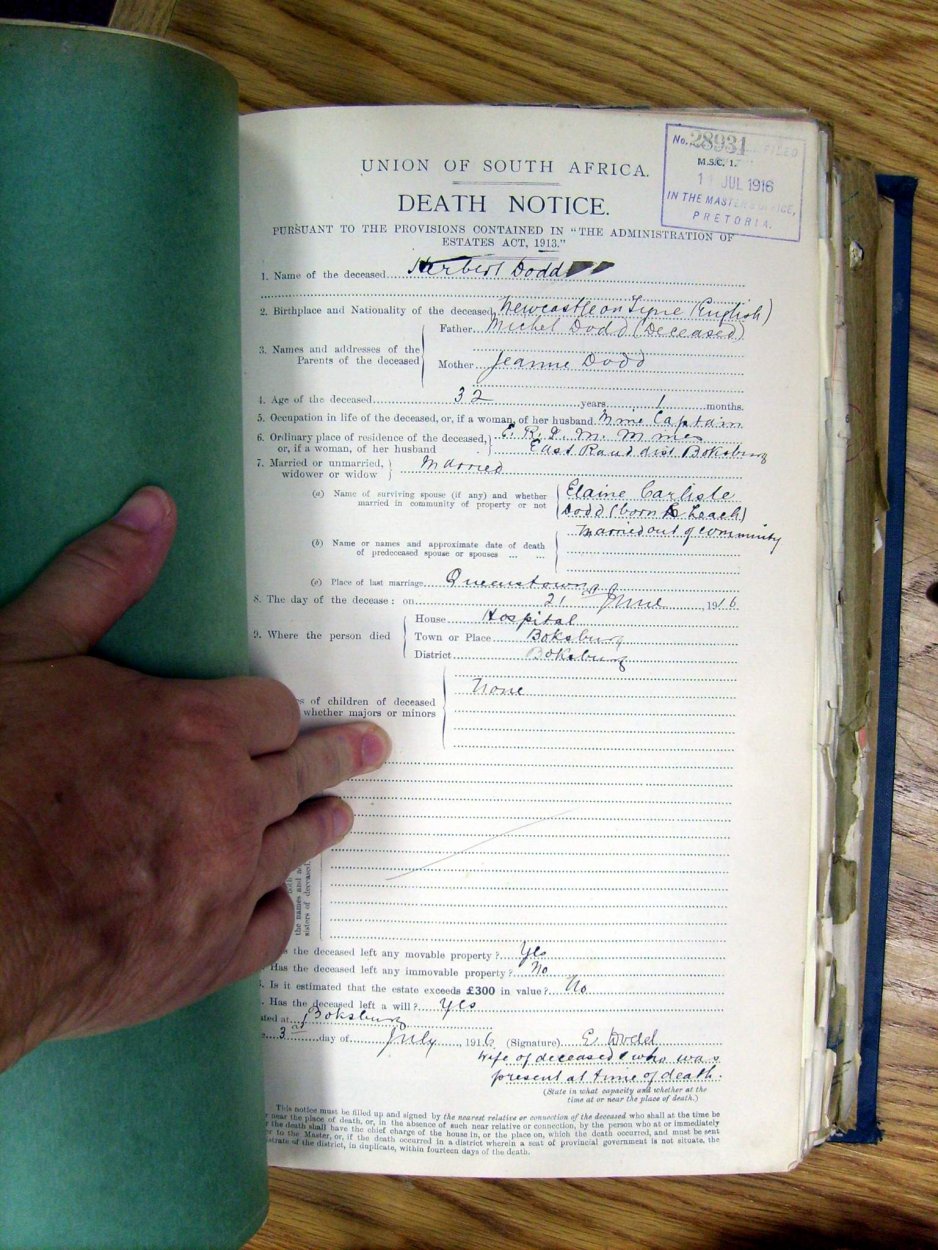 No. 28931 FILED
M.S.C. 1.
11 JUL 1916
IN THE MASTER'S OFFICE,
PRETORIA.
UNION OF SOUTH AFRICA.
DEATH NOTICE.
PURSUANT TO THE PROVISIONS CONTAINED IN "THE ADMINISTRATION OF
ESTATES ACT, 1913."
1. Name of the deceased Herbert Dodd
2. Birthplace and Nationality of the deceased Newcastle on Tyne (English)
3. Names and addresses of the Parents of the deceased
Father Michel Dodd (Deceased)
Mother Jeannie Dodd
4. Age of the deceased 32 years 1 months.
5. Occupation in life of the deceased, or, if a woman, of her husband Mine Captain
6. Ordinary place of residence of the deceased, E. R. P. M. Mines
or, if a woman, of her husband East Rand dist. Boksburg
7. Married or unmarried, widower or widow Married
(a) Name of surviving spouse (if any) and whether married in community of property or not
Elaine Carlisle
Dodd (born Leach)
Married out of community
(b) Name or names and approximate date of death
of predeceased spouse or spouses ... ...
(c) Place of last marriage Queenstown
8. The day of the decease: on 21st June, 1916
9. Where the person died
House Hospital
Town or Place Boksburg
District Boksburg
s of children of deceased
whether majors or minors
None
the names and
sisters of deceased.
the deceased left any movable property? Yes
Has the deceased left any immovable property? No
Is it estimated that the estate exceeds £300 in value? No
Has the deceased left a will? Yes
ated at Boksburg
3 day of July, 1916 (Signature) E Dodd
Wife of deceased & who was
present at time of death.
(State in what capacity and whether at the
time at or near the place of death.)
This notice must be filled up and signed by the nearest relative or connection of the deceased who shall at the time be
r near the place of death, or, in the absence of such near relative or connection, by the person who at or immediately
r the death shall have the chief charge of the house in, or the place on, which the death occurred, and must be sent
er to the Master, or, if the death occurred in a district wherein a seat of provincial government is not situate, the
istrate of the district, in duplicate, within fourteen days of the death.